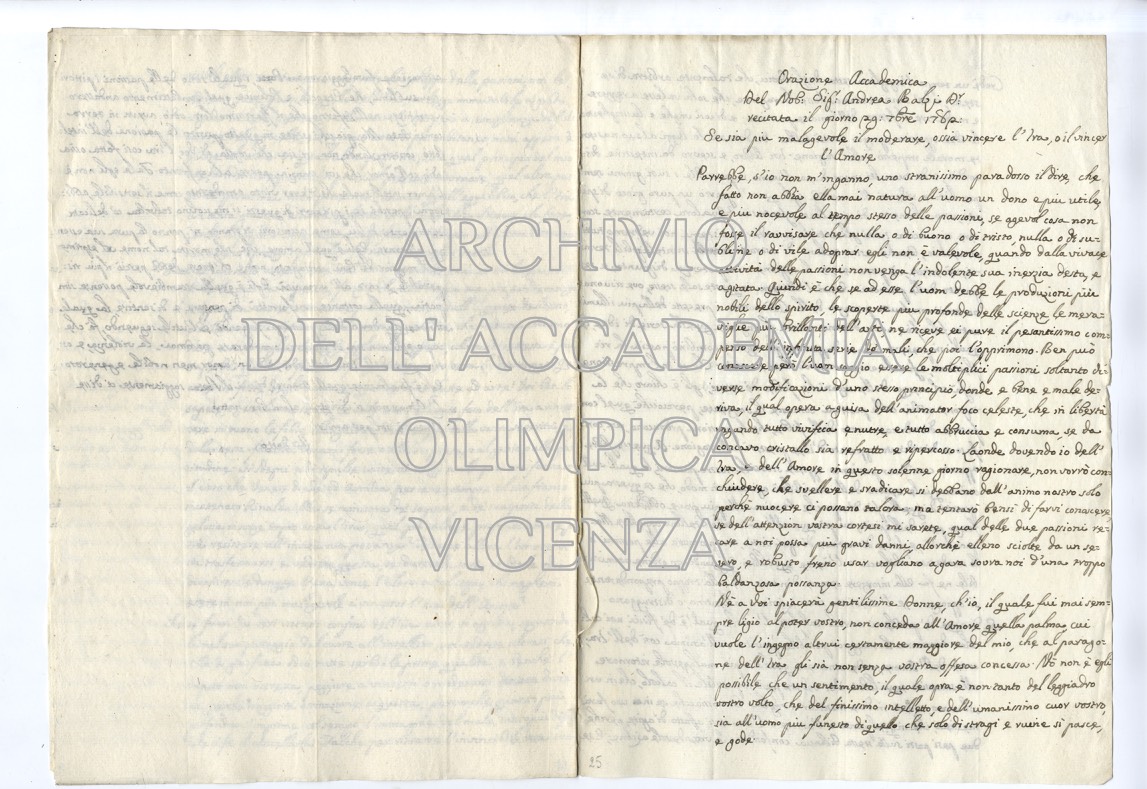 Orazione Accademica
Del Nob: Sig: Andrea Balzi Dr
recitata il giorno 29: 7bre 1762
Se sia più malagevole il moderare, ossia vincere l'Ira, o il vincer
l'Amore
Parrebbe, s'io non m'inganno, uno stranissimo paradosso il dire, che
fatto non abbia ella mai natura all'uomo un dono e più utile,
e più nocevole al tempo stesso delle passioni, se agevol cosa non
fosse il ravvisare che nulla o di buono, o di tristo, nulla o di su=
blime o di vile adoprar egli non è valevole, quando dalla vivace
attività delle passioni non venga l'indolente sua inerzia desta, e
agitata. Quindi è che se ad esse l'uom debbe le produzioni più
nobili dello spirito, le scoperte più profonde delle scienze le mera=
viglie più brillanti dell'arte ne riceve ei pure il pesantissimo com=
penso dell'infinita serie de mali che poi l'opprimono. Ben può
conoscere però l'uom saggio essere le moltiplici passioni soltanto di=
verse modificazioni d'uno stesso principio, donde e bene e male de=
riva, il qual opera a guisa dell'animator foco celeste, che in libertà
vagando tutto vivifica e nutre, e tutto abbruccia e consuma, se da
concavo cristallo sia refratto e ripercosso. Laonde dovendo io dell'
Ira, e dell'Amore in questo solenne giorno ragionare, non vorrò con=
chiudere, che svellere e sradicare si debbano dall'animo nostro solo
perchè nuocere ci possano talora, ma tentarò bensì di farvi conoscere
se dell'attenzion vostra cortesi mi sarete, qual delle due passioni re=
care a noi possa più gravi danni, allorchè elleno sciolte da un se=
vero, e robusto freno usar vogliano a gara sovra noi d'una troppo
baldanzosa possanza.
Nè a Voi spiacerà gentilissime Donne, ch'io, il quale fui mai sem=
pre ligio al poter vostro, non conceda all'Amore quella palma cui
vuole l'ingegno altrui certamente maggiore del mio, che al parago=
ne dell'Ira gli sia non senza vostra offesa concessa. Nò non è egli
possibile che un sentimento, il quale opra è non tanto del leggiadro
vostro volto, che del finissimo intelletto, e dell'umanissimo cuor vostro,
sia all'uomo più funesto di quello che solo di stragi e ruine si pasce,
e gode
25
ARCHIVIO
DELL'ACCADEMIA
OLIMPICA
VICENZA